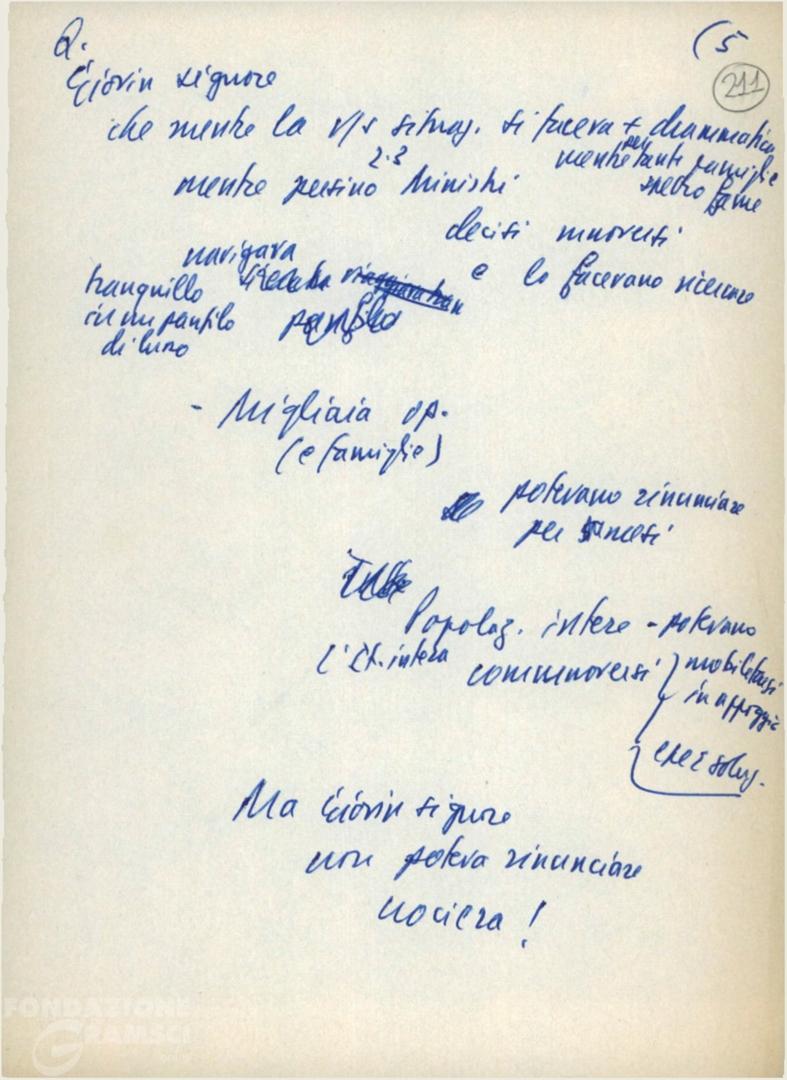 Q. (5
211
giovin signore
che mentre la v/s situaz. si faceva + drammatica
mentre per tanti famiglie
spettro fame
2.3
mentre persino Ministri
decisi muoversi
e lo facevano ricercare
navigava
tranquillo
in un panfilo
di lusso
panfilo
- Migliaia op.
(e famiglie)
potevano rinunciare
per mesi
Popolaz. intere - potevano
l'It. intera commuoversi
mobilitarsi
in appoggio
Ma giovin signore
non poteva rinunciare
crociera!
FONDAZIONE
GRAMSCI